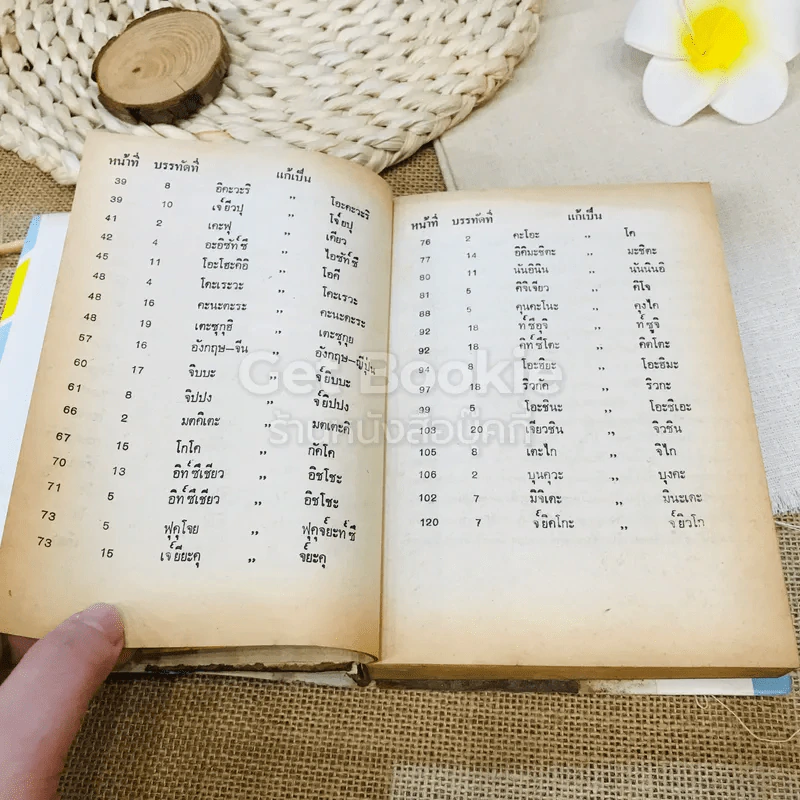 หน้าที่ บรรทัดที่ แก้เป็น
39 8 อิคะวะริ ,, โอะคะวะริ
39 10 เจ๎ยีวปุ ,, โจ๎ยปุ
41 2 เคะฟุ ,, เคียว
42 4 อะอิซัท๎ซึ ,, ไอซัท๎ซึ
45 11 โอะโฮะคิอิ ,, โอคี
48 4 โคะเระวะ ,, โคะเรวะ
48 16 คะนะตะระ ,, คะนะคะระ
48 19 เตะซุกุฮิ ,, เตะซุกุย
57 16 อังกฤษ–จีน ,, อังกฤษ–ญี่ปุ่น
60 17 จิบบะ ,, จ๎ยิบบะ
61 8 จิปปง ,, จ๎ยิปปง
66 2 มตคิเตะ ,, มตเตะคิ
67 15 โกโค ,, กัคโค
70 13 อิท๎ซึเชียว ,, อิชโชะ
71 5 อิท๎ซึเชียว ,, อิชโชะ
73 5 ฟุคุโจย ,, ฟุคุจ๎ยะท๎ซึ
73 15 เจ๎ยียะคุ ,, จ๎ยะคุ
หน้าที่ บรรทัดที่ แก้เป็น
76 2 คะโอะ ,, โค
77 14 อิคิมะชิตะ ,, มะชิตะ
80 11 นันอินิน ,, นันนินอิ
81 5 คิจิเจียว ,, คิโจ
88 5 คุนคะโนะ ,, คุงไค
92 18 ท๎ซึอุจิ ,, ท๎ซูจิ
92 18 คิท๎ซึโตะ ,, คิตโตะ
94 8 โอะฮิยะ ,, โอะฮิมะ
97 18 ริวกัค ,, ริวกะ
99 5 โอะชินะ ,, โอะชิเอะ
103 20 เจียวชิน ,, จิวชิน
105 8 เตะไก ,, จิไก
106 2 บุนคุวะ ,, บุงคะ
102 7 มิจิเตะ ,, มินะเตะ
120 7 จ๎ยิคโกะ ,, จ๎ยิวโก
Get Bookie
ร้านหนังสือบุ๊คกี้